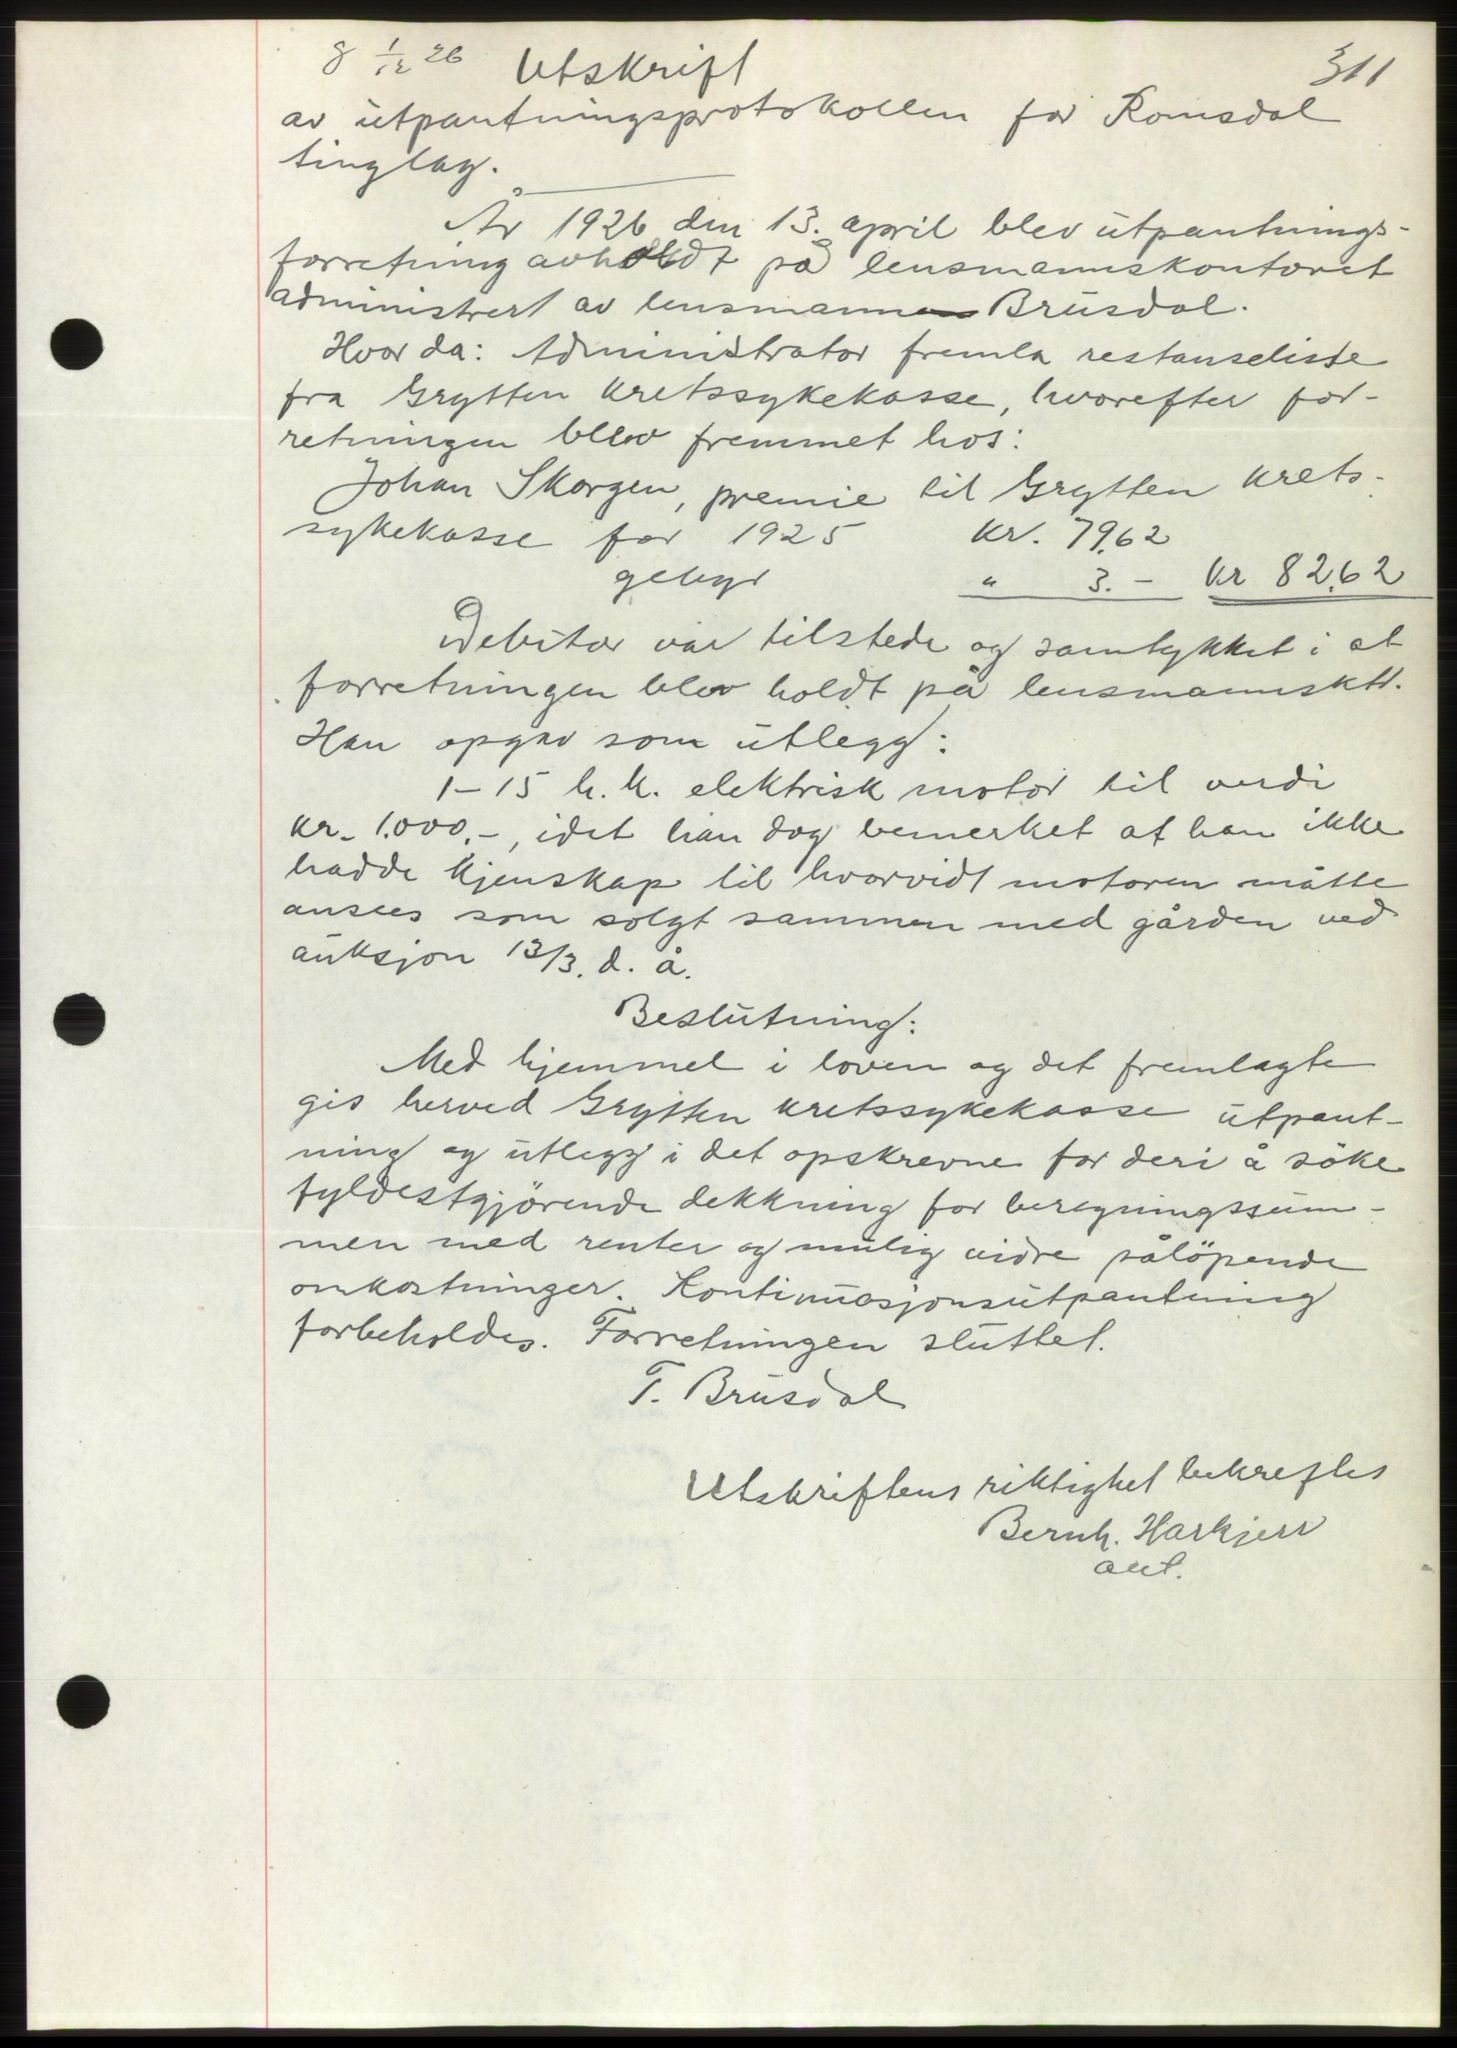 8 1/12 26 Utskrift 311
av utpantningsprotokollen for Romsdal
tinglag.
År 1926 den 13. april blev utpantnings-
forretning avholdt på lensmannskontoret
administrert av lensmann Brusdal.
Hvor da: Administrator fremla restanseliste
fra Grytten kretssykekasse, hvorefter for-
retningen blev fremmet hos:
Johan Skorgen, premie til Grytten krets-
sykekasse for 1925 kr. 79,62
gebyr " 3.- kr 82,62
Debitor var tilstede og samtykket i at
forretningen blev holdt på lensmannsktr.
Han opgav som utlegg:
1-15 h.k. elektrisk motor til verdi
kr. 1.000.-, idet han dog bemerket at han ikke
hadde kjenskap til hvorvidt motoren måtte
ansees som solgt sammen med gården ved
auksjon 13/3. d. å.
Beslutning:
Med hjemmel i loven og det fremlagte
gis herved Grytten kretssykekasse utpant-
ning og utlegg i det opskrevne for deri å söke
fyldestgjörende dekkning for beregningssum-
men med renter og mulig vidre påløpende
omkostninger. Kontinuasjonsutpantning
forbeholdes. Forretningen sluttet.
T. Brusdal
Utskriftens riktighet bekreftes
Bernh. Harkjerr
aut.